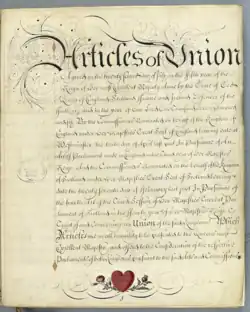 Articles of Union
Agreed on the twenty Second day of July in the Fifth year of the
Reign of Her most Excellent Majesty Anne by the Grace of God
Queen of England Scotland France and Ireland Defender of the
Faith and in the Year of our Lord One thousand Seven hundred
and Six By the Commissioners Nominated on behalf of the Kingdom of
England under Her Majesties Great Seal of England bearing date at
Westminster the tenth day of April last past In Pursuance of An
Act of Parliament made in England in the third year of Her Majesties
Reign And the Commissioners Nominated on the behalf of the Kingdom
of Scotland under Her Majesties Great Seal of Scotland bearing
date the twenty Seventh day of February last past In Pursuance of
the fourth Act of the Third Session of Parliament
of Scotland in the year of Her Majesties Reign to
Treat of and Concerning an Union of the said Kingdoms Which
Articles are in all humility to be presented to the Queens most
Excellent Majesty and offered to the Consideration of the respective
Parliaments of both Kingdoms pursuant to the said Acts and Commissions